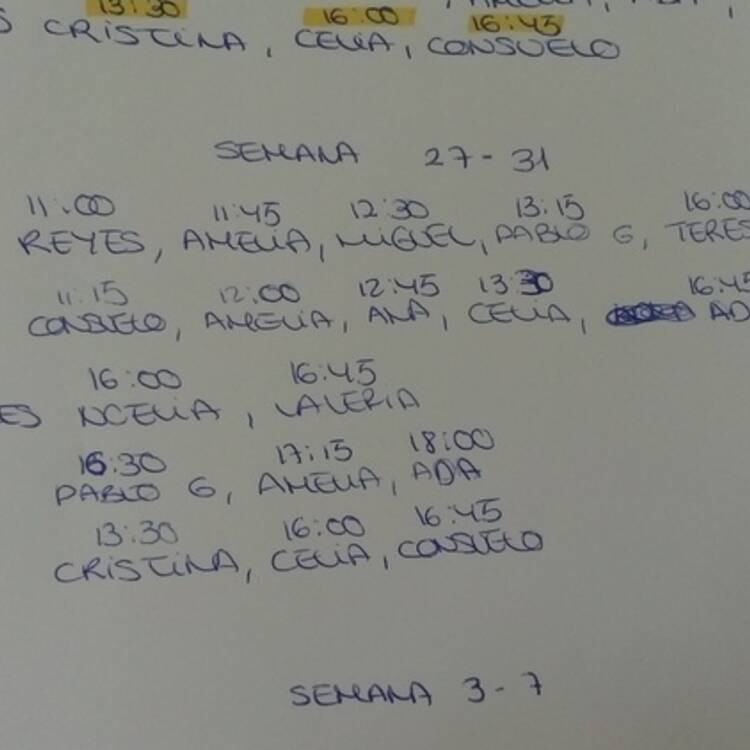 13:30 16:00 16:45
S CRISTINA, CELIA, CONSUELO
SEMANA 27-31
11:00 11:45 12:30 13:15 16:00
REYES, AMELIA, MIGUEL, PABLO G, TERES
11:15 12:00 12:45 13:30 16:45
CONSUELO, AMELIA, ANA, CELIA, AD
16:00 16:45
ES NOELIA, VALERIA
16:30 17:15 18:00
PABLO G, AMELIA, ADA
13:30 16:00 16:45
CRISTINA, CELIA, CONSUELO
SEMANA 3-7